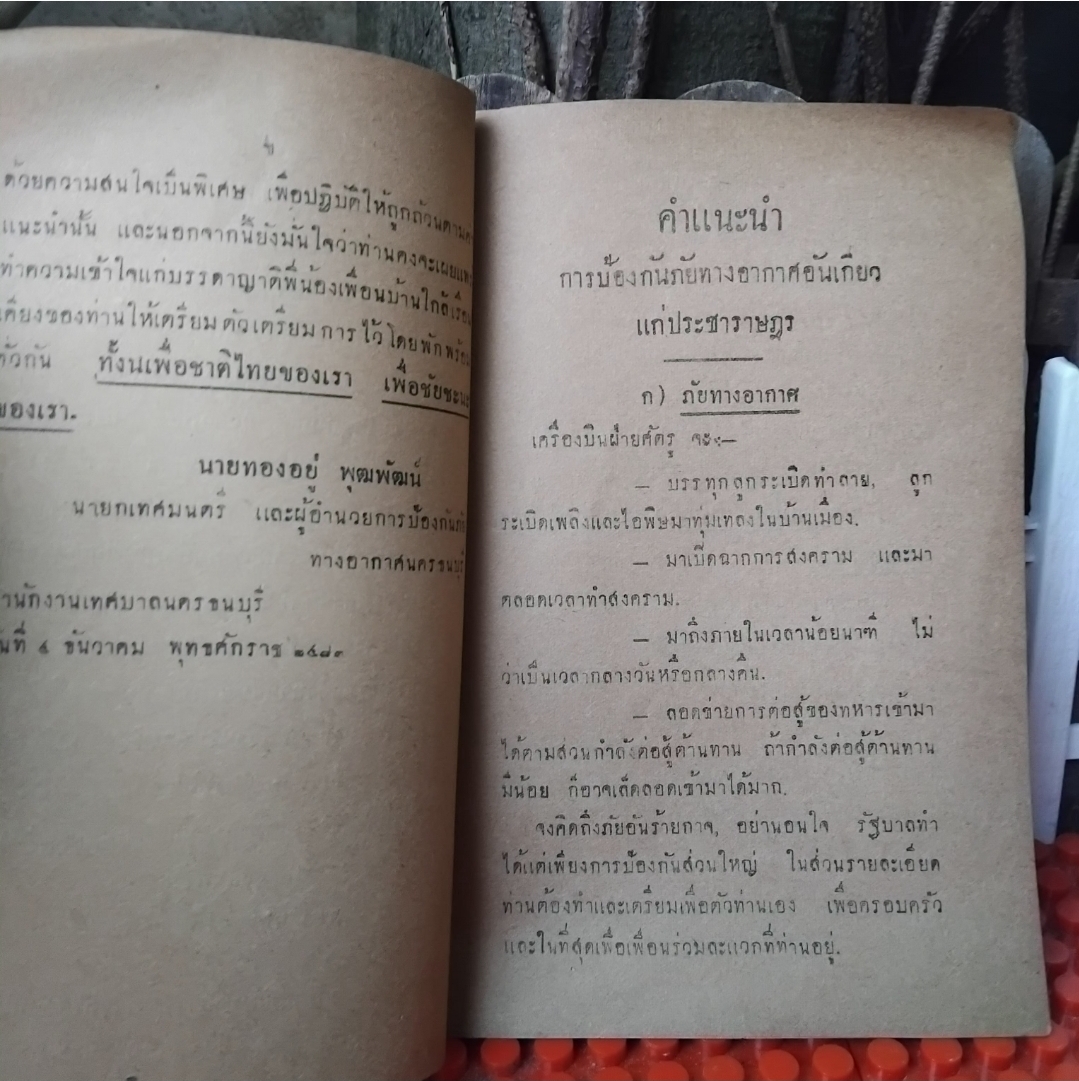 ข
ด้วยความสนใจเป็นพิเศษ เพื่อปฏิบัติให้ถูกถ้วนตาม
แนะนำนั้น และนอกจากนี้ยังมั่นใจว่าท่านคงจะเผยแพร่
ทำความเข้าใจแก่บรรดาญาติพี่น้องเพื่อนบ้านใกล้เรือน
เคียงของท่านให้เตรียมตัวเตรียมการไว้โดยพักพร้อม
ตัวกัน ทั้งนี้เพื่อชาติไทยของเรา เพื่อชัยชะนะ
ของเรา.
นายทองอยู่ พุฒพัฒน์
นายกเทศมนตรี และผู้อำนวยการป้องกันภัย
ทางอากาศนครธนบุรี
สำนักงานเทศบาลนครธนบุรี
วันที่ ๔ ธันวาคม พุทธศักราช ๒๔๘๓
คำแนะนำ
การป้องกันภัยทางอากาศอันเกี่ยว
แก่ประชาราษฎร
ก) ภัยทางอากาศ
เครื่องบินฝ่ายศัตรู จะ:—
— บรรทุกลูกระเบิดทำลาย, ลูก
ระเบิดเพลิงและไอพิษมาทุ่มเทลงในบ้านเมือง.
— มาเปิดฉากการสงคราม และมา
ตลอดเวลาทำสงคราม.
— มาถึงภายในเวลาน้อยนาฑี ไม่
ว่าเป็นเวลากลางวันหรือกลางคืน.
— ลอดข่ายการต่อสู้ของทหารเข้ามา
ได้ตามส่วนกำลังต่อสู้ต้านทาน ถ้ากำลังต่อสู้ต้านทาน
มีน้อย ก็อาจเล็ดลอดเข้ามาได้มาก.
จงคิดถึงภัยอันร้ายกาจ, อย่านอนใจ รัฐบาลทำ
ได้แต่เพียงการป้องกันส่วนใหญ่ ในส่วนรายละเอียด
ท่านต้องทำและเตรียมเพื่อตัวท่านเอง เพื่อครอบครัว
และในที่สุดเพื่อเพื่อนร่วมละแวกที่ท่านอยู่.